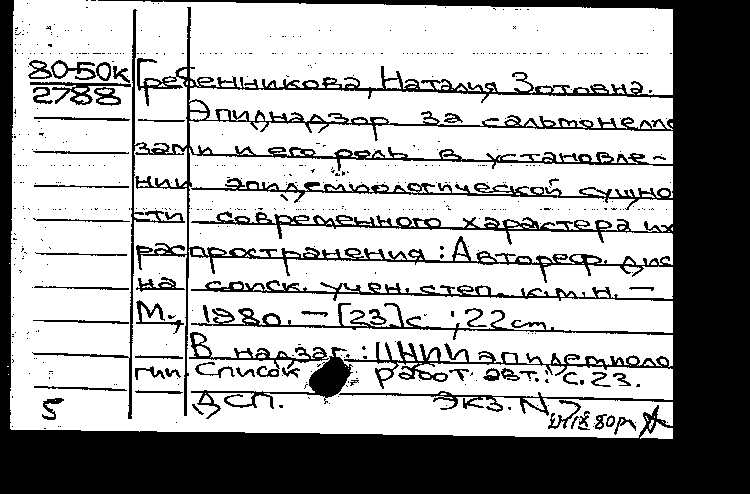 80-50к
2788
Гребенникова, Наталия Зотовна.
Эпиднадзор за сальмонелле
зами и его роль в установле-
нии эпидемиологической сущно
сти современного характера их
распространения : Автореф. дис
на соиск. учен. степ. к.м.н. —
М., 1980. — [23] с ; 22 cm.
В надзаг.: ЦНИИ эпидемиоло
гии. Список работ авт.: с. 23.
ДСП. Экз. N
5